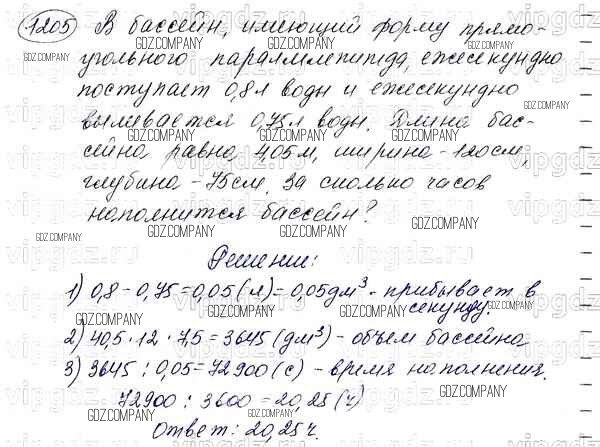 1205 В бассейн, имеющий форму прямо-
угольного параллелепипеда, ежесекундно
поступает 0,8 л воды и ежесекундно
выливается 0,75 л воды. Длина бас-
сейна равна 4,05 м, ширина - 120 см,
глубина - 75 см. За сколько часов
наполнится бассейн?
Решении:
1) 0,8 - 0,75 = 0,05 (л) = 0,05 дм³ - прибывает в
секунду.
2) 40,5 · 12 · 7,5 = 3645 (дм³) - объем бассейна
3) 3645 : 0,05 = 72900 (с) - время наполнения.
72900 : 3600 = 20,25 (ч)
Ответ: 20,25 ч.